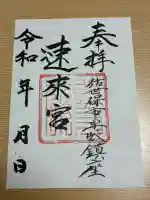 奉拝
佐世保市早岐鎮座
速來宮
令和年月日